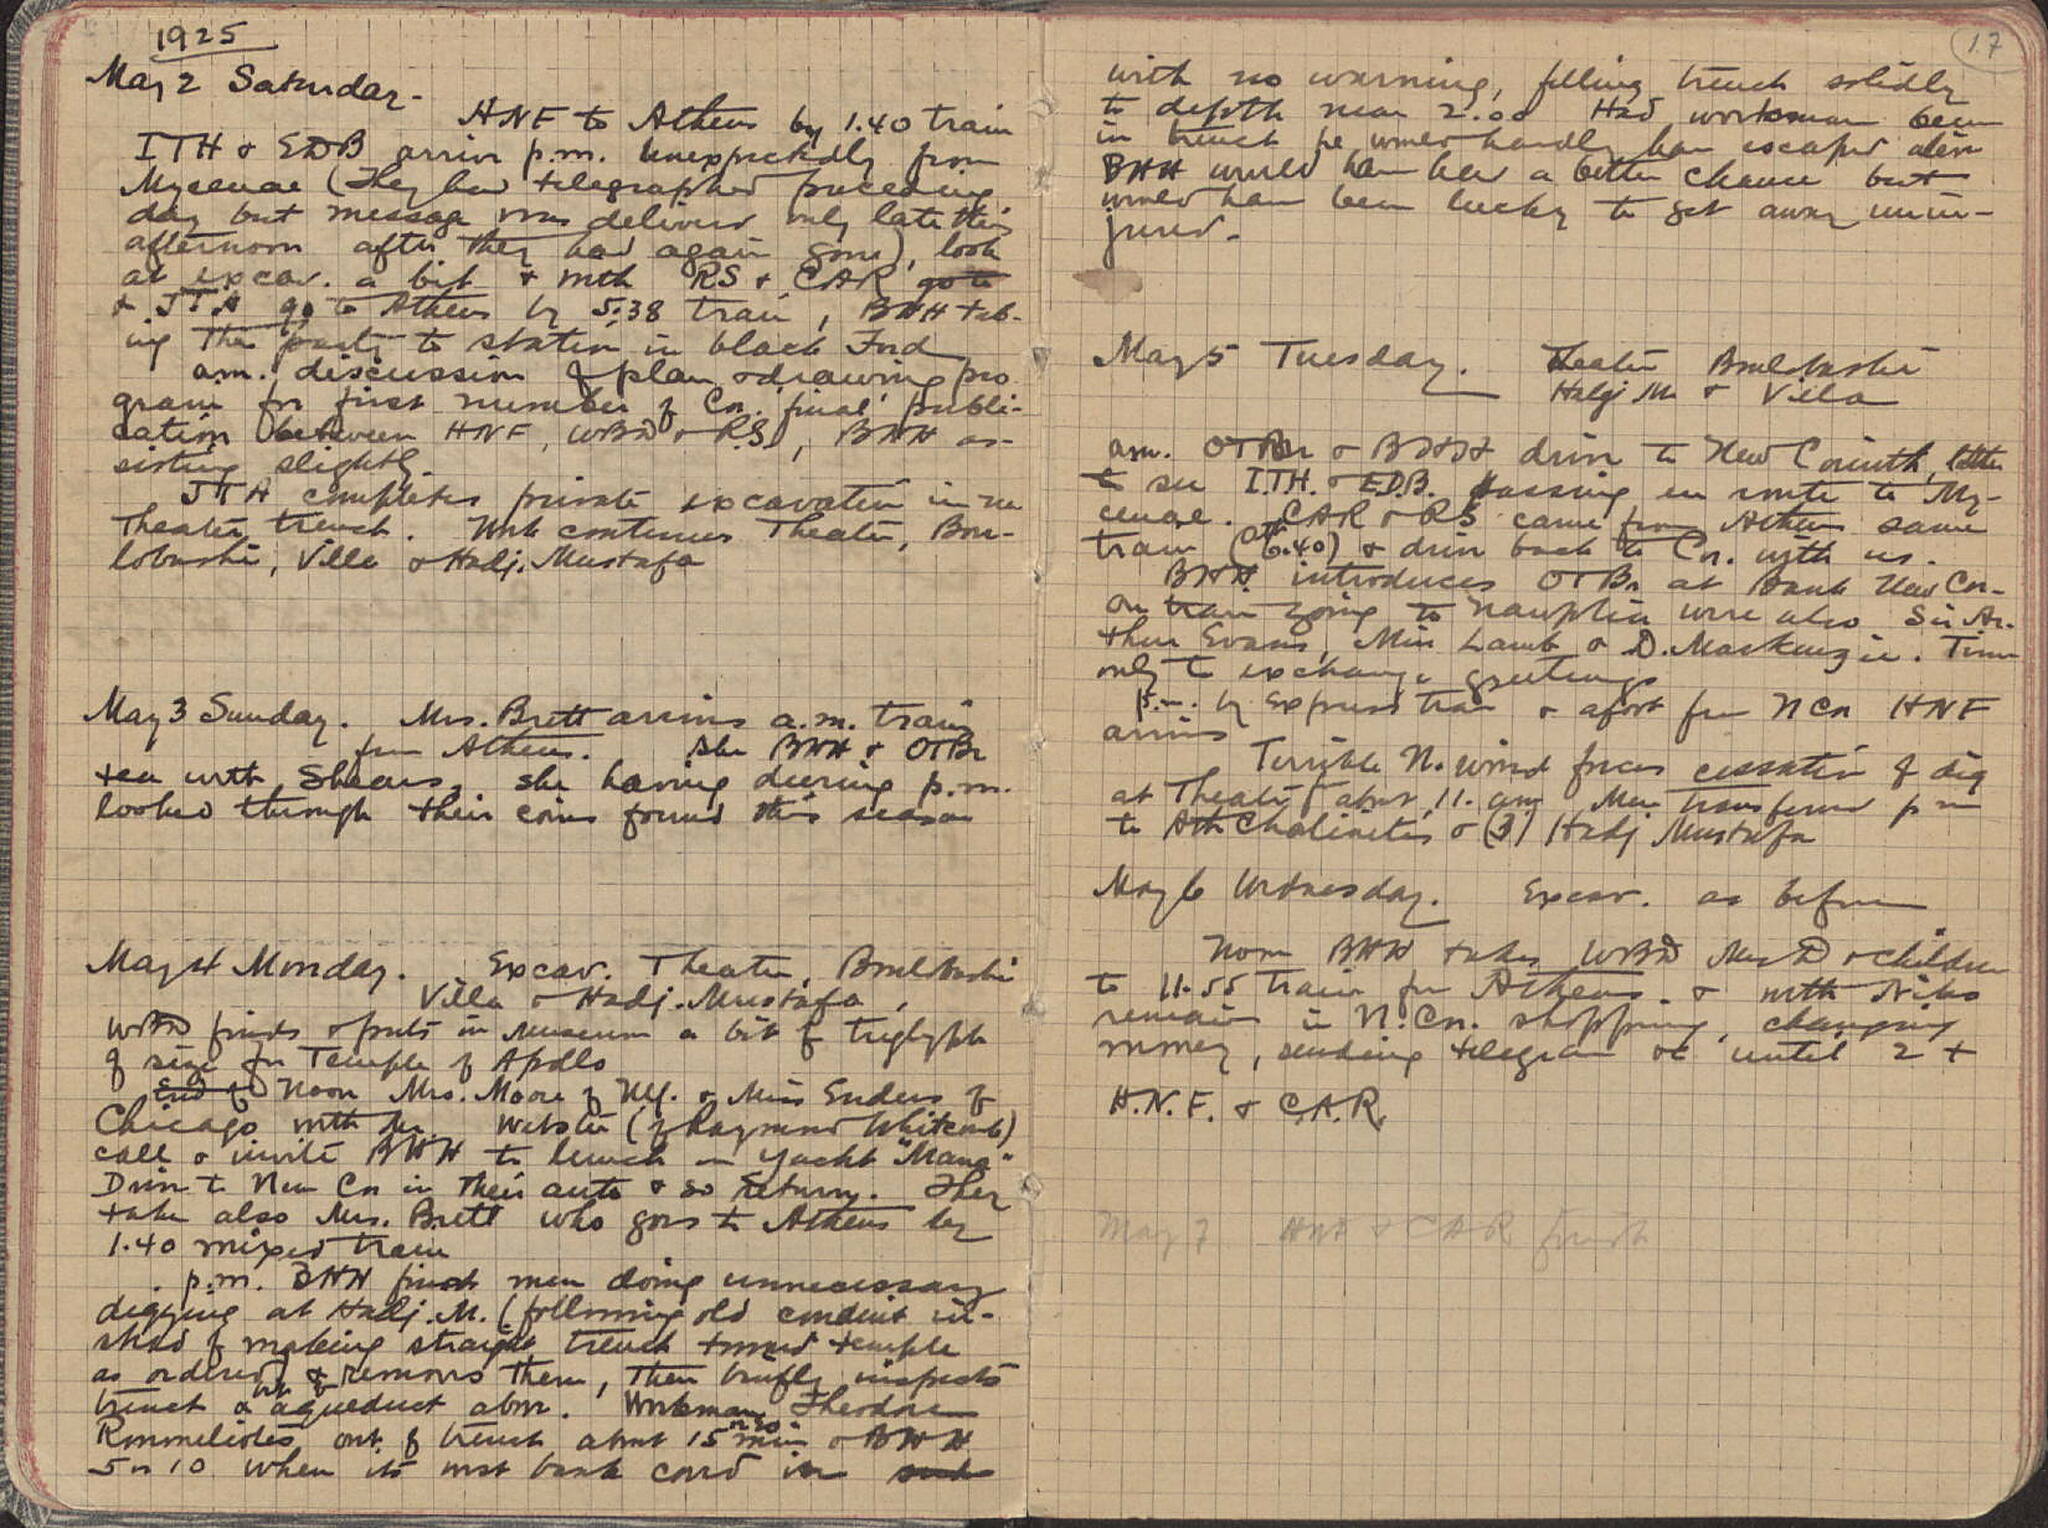 1925
May 2 Saturday-
HNF to Athens by 1.40 train
ITH & EDB arrive p.m. unexpectedly from
Mycenae (They had telegraphed preceding
day but message was delivered only late this
afternoon after they had again gone), look
at excav. a bit & with RS & CAR go to
& JTA go to Athens by 5:38 train, BHH tak-
ing the party to station in black Ford
a.m. discussion of plan & drawing pro
gram for first number of Cor. 'final' publi-
cation between HNF, WBD & RS, BHH as-
sisting slightly-
JTA completes private excavation in
Theater trench. Work continues Theater, Bou-
lobashi, Villa & Hadj. Mustafa
May 3 Sunday. Mrs. Brett arrives a.m. train
from Athens. She BHH & OTBr
tea with Shears, she having during p.m.
looked through their coins found this season
May 4 Monday. Excav. Theater, Boulobashi
Villa & Hadj. Mustafa,
WBD finds & puts in museum a bit of triglyph
of size for Temple of Apollo
End of Noon Mrs. Moore of NY. & Miss Enders of
Chicago with Webster (of Raymond Whitcomb)
call & invite BHH to lunch on yacht "Mana"
Drive to New Cor in their auto & so return. They
take also Mrs. Brett who goes to Athens by
1.40 mixed train
p.m. BHH finds men doing unnecessary
digging at Hadj. M. (following old conduit in-
stead of making straight trench toward temple
as ordered) & removes them, then briefly inspects
trench at aqueduct above. Workman Theodore
Roumeliotes out of trench about 15 min or so & BHH
5 or 10 when its west bank caved in
17
with no warning, filling trench solidly
to depth near 2.00 Had workman been
in trench he would hardly have escaped alive
BHH would have had a better chance but
would have been lucky to get away unin-
jured-
May 5 Tuesday. Theater Boulobashi
Hadj M. & Villa
a.m. OTBr & BHH drive to New Corinth, latter
to see I.T.H. & E.D.B. passing en route to My-
cenae. CAR & RS came from Athens same
train (6.40) & drive back to Cor. with us.
BHH introduces OTBr at Bank New Cor-
on train going to Nauplia were also Sir Ar-
thur Evans, Miss Lamb & D. Mackenzie. Time
only to exchange greetings
p.m. by express train & afoot from N Cor HNF
arrives
Terrible N. wind forces cessation of dig
at Theater about 11. am Men transferred p m
to Ath Chalinitis & (3) Hadj Mustafa
May 6 Wednesday. Excav. as before
Noon BHH takes WBD Mrs D & children
to 11.55 train for Athens. & with Niko
remain in N. Cor. shopping, changing
money, sending telegram etc until 2 +
H.N.F. & C.A.R.
May 7 HNF & CAR finish